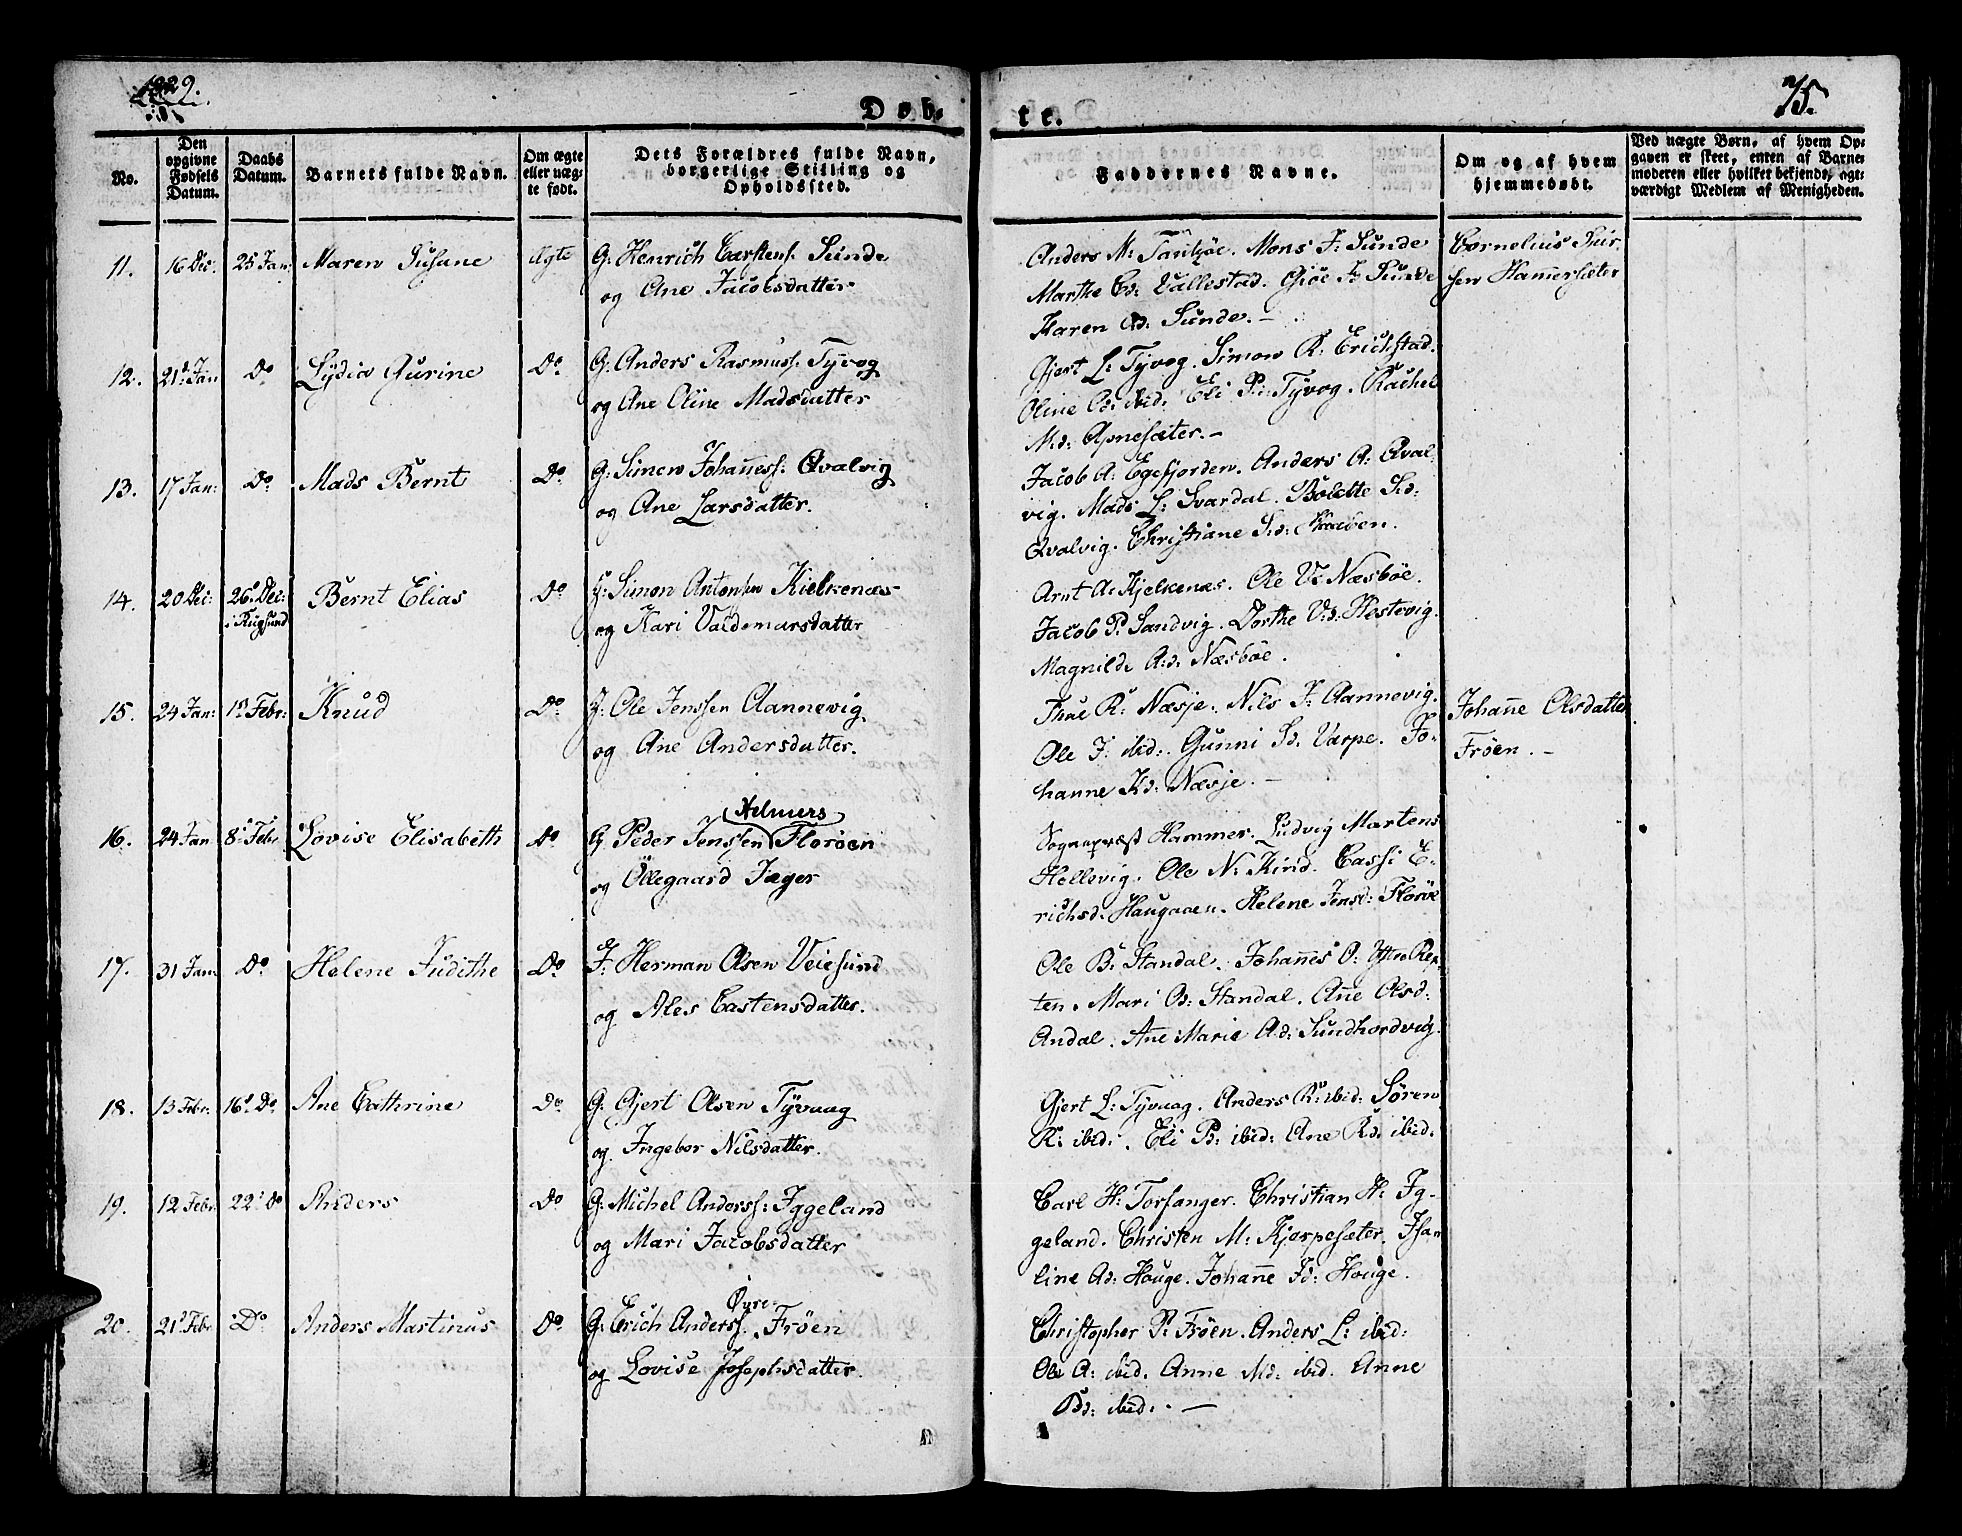 1829.
75.
Døb-
te.
No.
Den opgivne Fødsels Datum.
Daabs Datum.
Barnets fulde Navn.
Om ægte eller uægte født.
Dets Forældres fulde Navn, borgerlige Stilling og Opholdssted.
Faddernes Navne.
Om og af hvem hjemmedøbt.
Ved uægte Børn, af hvem Opgaven er skeet, enten af Barnemoderen eller hvilket bekjendt, agtværdigt Medlem af Menigheden.
11. 16 Dec: 25 Jan: Maren Susane ægte G: Henrich Carstens. Sunde
og Ane Jacobsdatter
Anders M: Mons J: Sunde
Marthe Ed: Vallestad. Giøe J: Sunde
Karen Sunde. -
Cornelius
sen Hamersæter
12. 21d: Jan Do Lydia Gurine Do G: Anders Rasmuss. Tyvog
og Ane Oline Madsdatter
Gjert L: Tyvog. Simon R: Erichstad.
Oline Od: ibid. Eli Pd: Tyvog. Rachel
Md: Apnesæter. -
13. 17 Jan: Do Mads Bernt Do G: Simen Johañess: Qvalvig
og Ane Larsdatter.
Jacob A: Egefjorden. Anders A: Qval-
vig. Mads L: Svardal. Bolette Sd:
Qvalvig. Christiane Sd:
14. 20 Dec: 26d Dec: i Rugsund Bernt Elias Do J: Simon Antonsen Kielkenæs
og Kari Valdemarsdatter
Arnt A: Kjelkenæs. Ole V: Næsbøe.
Jacob P: Sandvig. Dorthe Vd: Hestevig.
Magnilde Ad: Næsbøe.
15. 24 Jan: 1d Febr: Knud Do J: Ole Jenssen Aannevig
og Ane Andersdatter.
Thue R: Næsje. Nils J: Aannevig.
Ole J: ibid: Gunni Sd: Varpe. Jo-
hanne Kd: Næsje. -
Johañe Olsdatter
Frøen. -
16. 24 Jan 8d Febr Lovise Elisabeth Do G: Peder Jenssen Helmers Florøen
og Øllegaard Jæger
Sognepræst Hammer. Ludvig Martens
Hellevig. Ole N: Kind. Cassi E-
richsd. Haugaaen. Helene Jensd: Florøe
17. 31 Jan: Do Helene Judithe Do J: Herman Olsen Veiesund
og Ales Castensdatter.
Ole B: Standal. Johannes O: Yttre Rep-
ten. Mari Od: Standal. Ane Olsd:
Andal. Ane Marie Ad: Sundhordvig.
18. 13 Febr: 16d Do Ane Cathrine Do G: Gjert Olsen Tyvaag
og Ingebor Nilsdatter.
Gjert L: Tyvaag. Anders R: ibid: Søren
R: ibid:. Eli Pd: ibid: Ane Rd: ibid.
19. 12 Febr 22d Do Anders Do G: Michel Anderss: Iggeland
og Mari Jacobsdatter
Carl H: Torsanger. Christian H: Ig-
geland. Christen M: Kjerpesæter.
line Ad: Houge. Johañe Jd: Houge.
20. 21d Febr Do Anders Martinus Do G: Erich Anderss. Øvre- Frøen
og Lovise Josephsdatter.
Christopher P: Frøen. Anders L: ibid:
Ole A: ibid. Anne Md: ibid. Anne
Pd: ibid. -